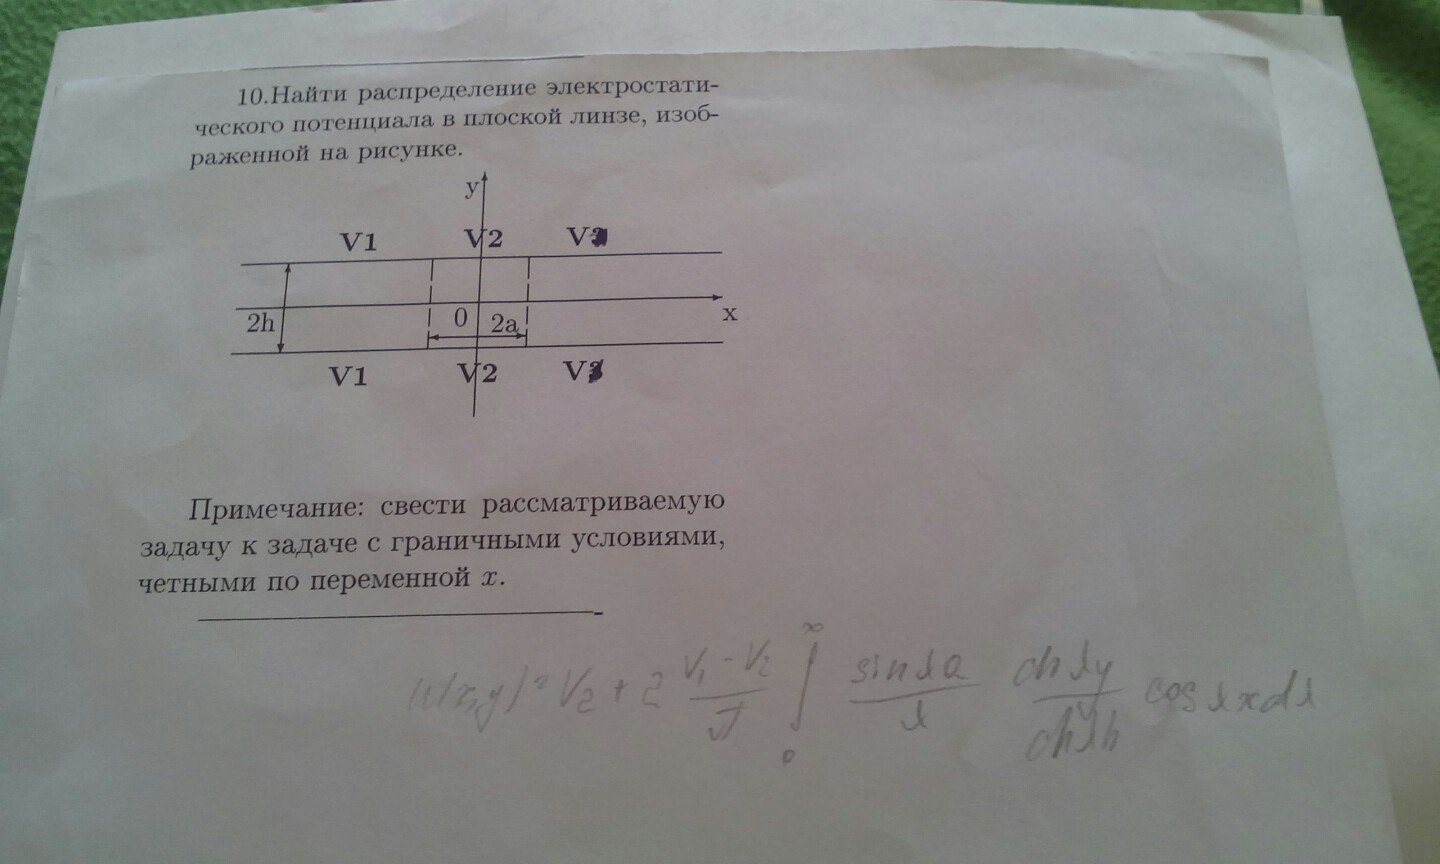 10.Найти распределение электростати-
ческого потенциала в плоской линзе, изоб-
раженной на рисунке.
y
V1 V2 V
2h 0 2a x
V1 V2 V
Примечание: свести рассматриваемую
задачу к задаче с граничными условиями,
четными по переменной x.
u(x,y) = V₂ + 2 (V₁ - V₂)/π ∫₀^∞ (sin λa)/λ (ch λy)/(ch λh) cos λx dλ